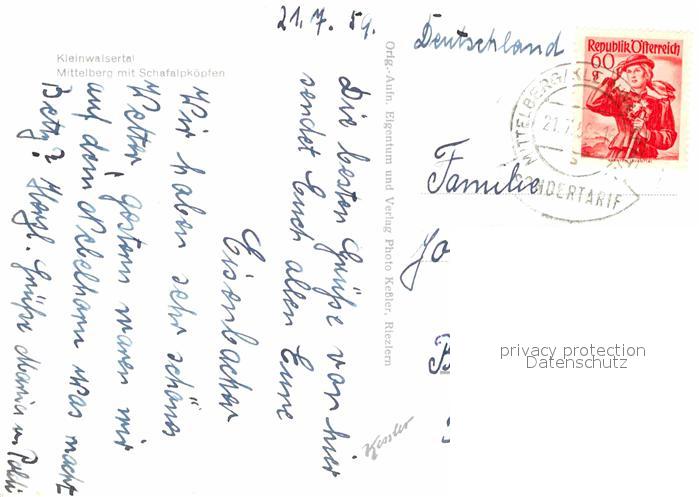 21.7.59.
Kleinwalsertal
Mittelberg mit Schafalpköpfen
Die besten Grüße von hier
sendet Euch allen Eure
Eisenbacher
Wir haben sehr schönes
Wetter, gestern waren wir
auf dem Nebelhorn was macht
Betty? Herzl. Grüße Maria u.
Orig.-Aufn. Eigentum und Verlag Photo Keßler, Riezlern
Kessler
Deutschland
Republik Österreich
60 g
MITTELBERG/KLEIN
21.7.59
SONDERTARIF
Familie
Jo
B
privacy protection
Datenschutz